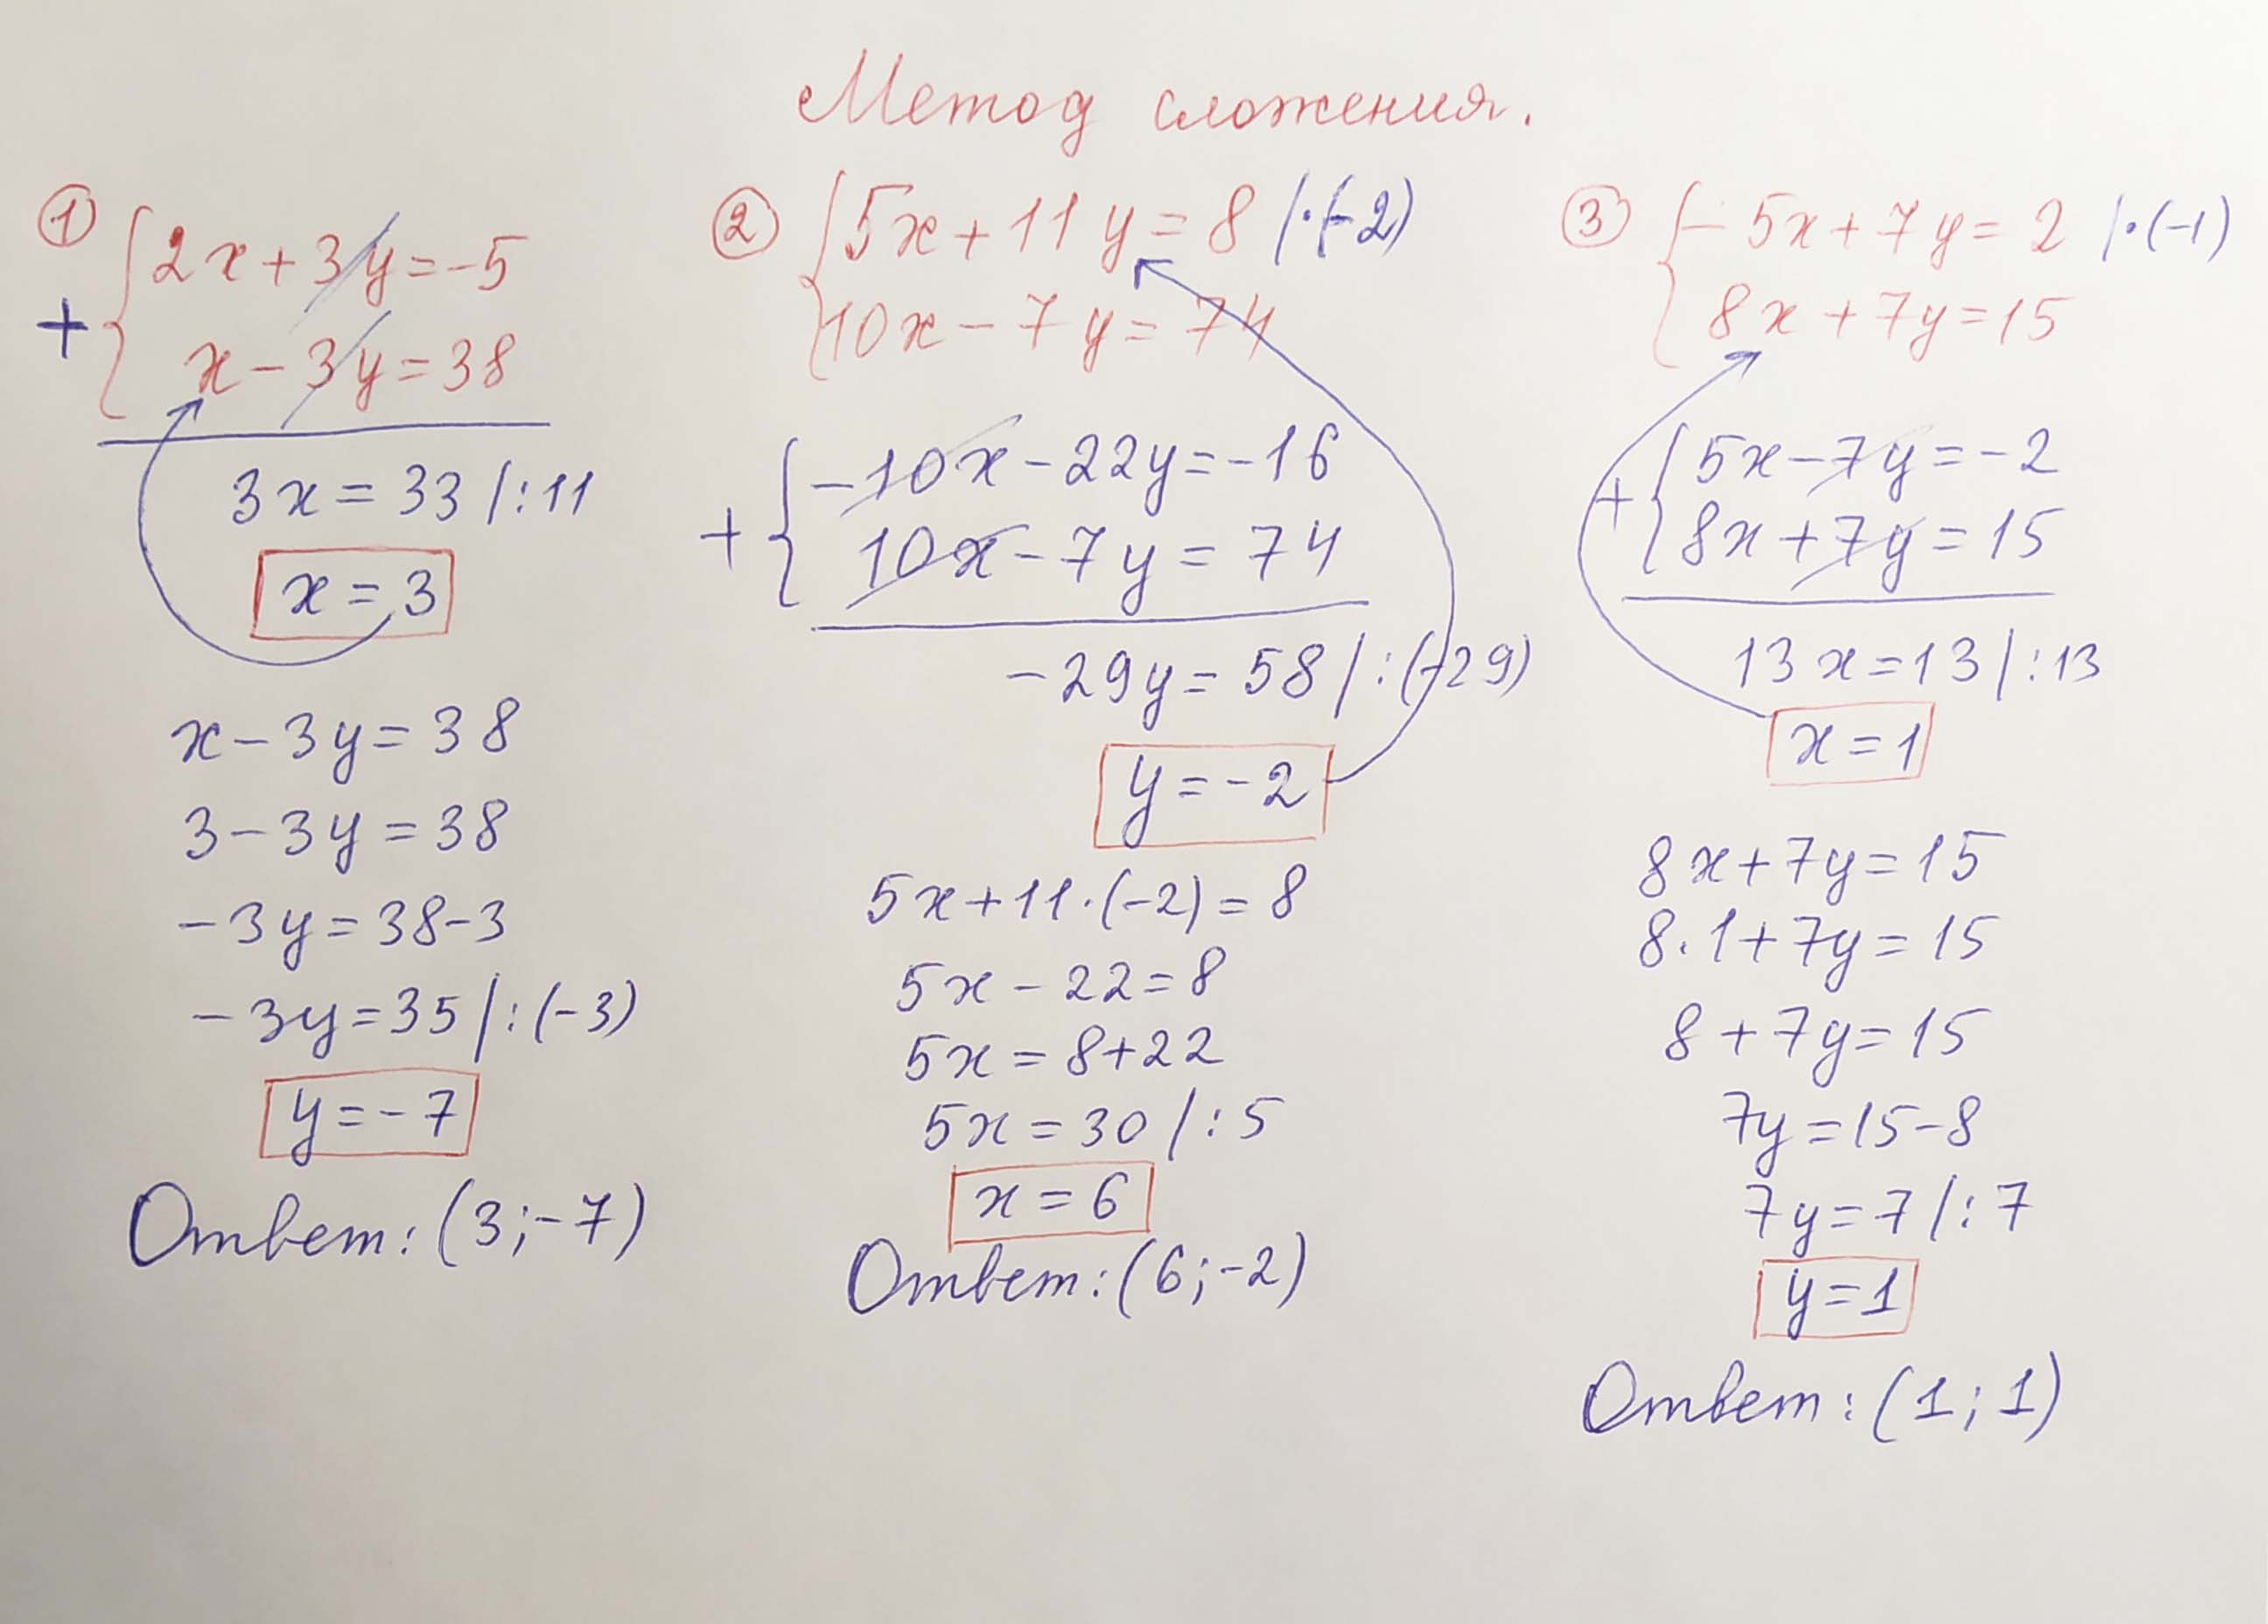 Метод сложения.
① 
2x+3y=-5
+
x-3y=38
3x=33 |:11
x=3
x-3y=38
3-3y=38
-3y=38-3
-3y=35 |:(-3)
y=-7
Ответ: (3;-7)
②
5x+11y=8 |·(-2)
10x-7y=74
-10x-22y=-16
+
10x-7y=74
-29y=58 |:(-29)
y=-2
5x+11·(-2)=8
5x-22=8
5x=8+22
5x=30 |:5
x=6
Ответ: (6;-2)
③
-5x+7y=2 |·(-1)
8x+7y=15
5x-7y=-2
+
8x+7y=15
13x=13 |:13
x=1
8x+7y=15
8·1+7y=15
8+7y=15
7y=15-8
7y=7 |:7
y=1
Ответ: (1;1)